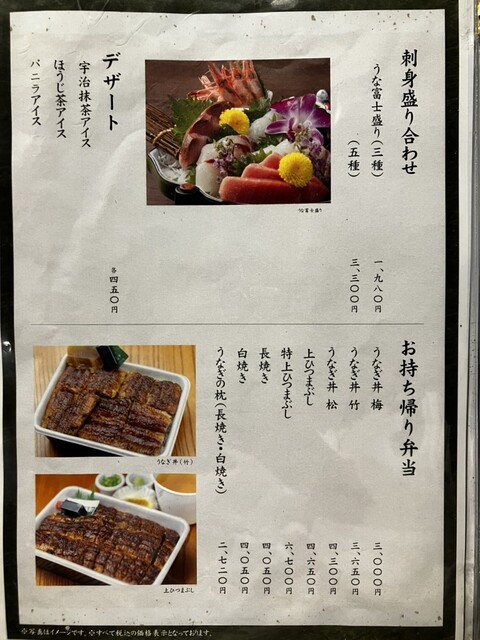 刺身盛り合わせ
うな富士盛り(三種) 一、九八〇円
(五種) 三、三〇〇円
うな富士盛り
デザート
宇治抹茶アイス
ほうじ茶アイス
バニラアイス
各 四五〇円
お持ち帰り弁当
うなぎ丼 梅 三、〇〇〇円
うなぎ丼 竹 三、六五〇円
うなぎ丼 松 四、三〇〇円
上ひつまぶし 四、六五〇円
特上ひつまぶし 六、七〇〇円
長焼き 四、〇五〇円
白焼き 四、〇五〇円
うなぎの枕(長焼き・白焼き) 二、七二〇円
うなぎ丼(竹)
上ひつまぶし
※写真はイメージです。※すべて税込の価格表示となっております。